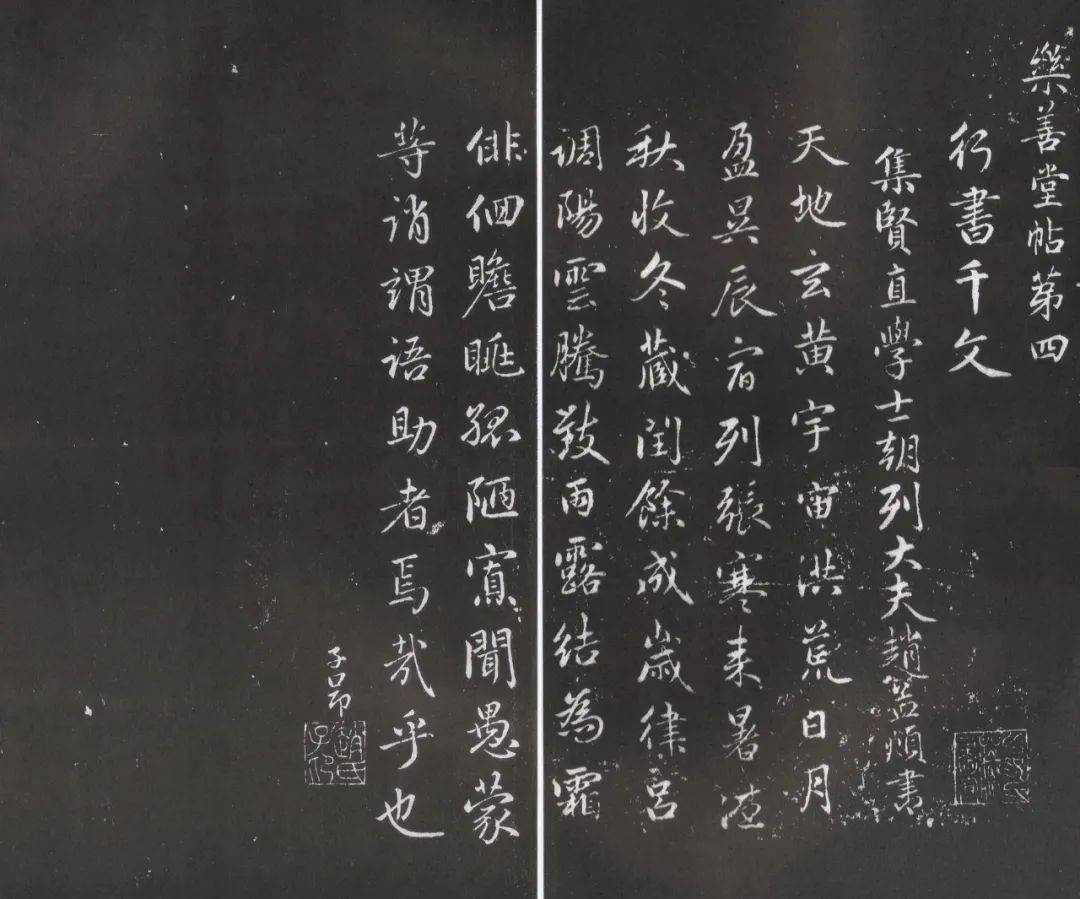 樂善堂帖第四
行書千文
集賢直學士朝列大夫趙孟頫書
天地玄黃宇宙洪荒日月
盈昃辰宿列張寒来暑往
秋收冬藏閏餘成歲律呂
調陽雲騰致雨露結為霜
俳佪瞻眺孤陋寡聞愚蒙
等誚謂語助者焉哉乎也
子昂
趙氏子昂